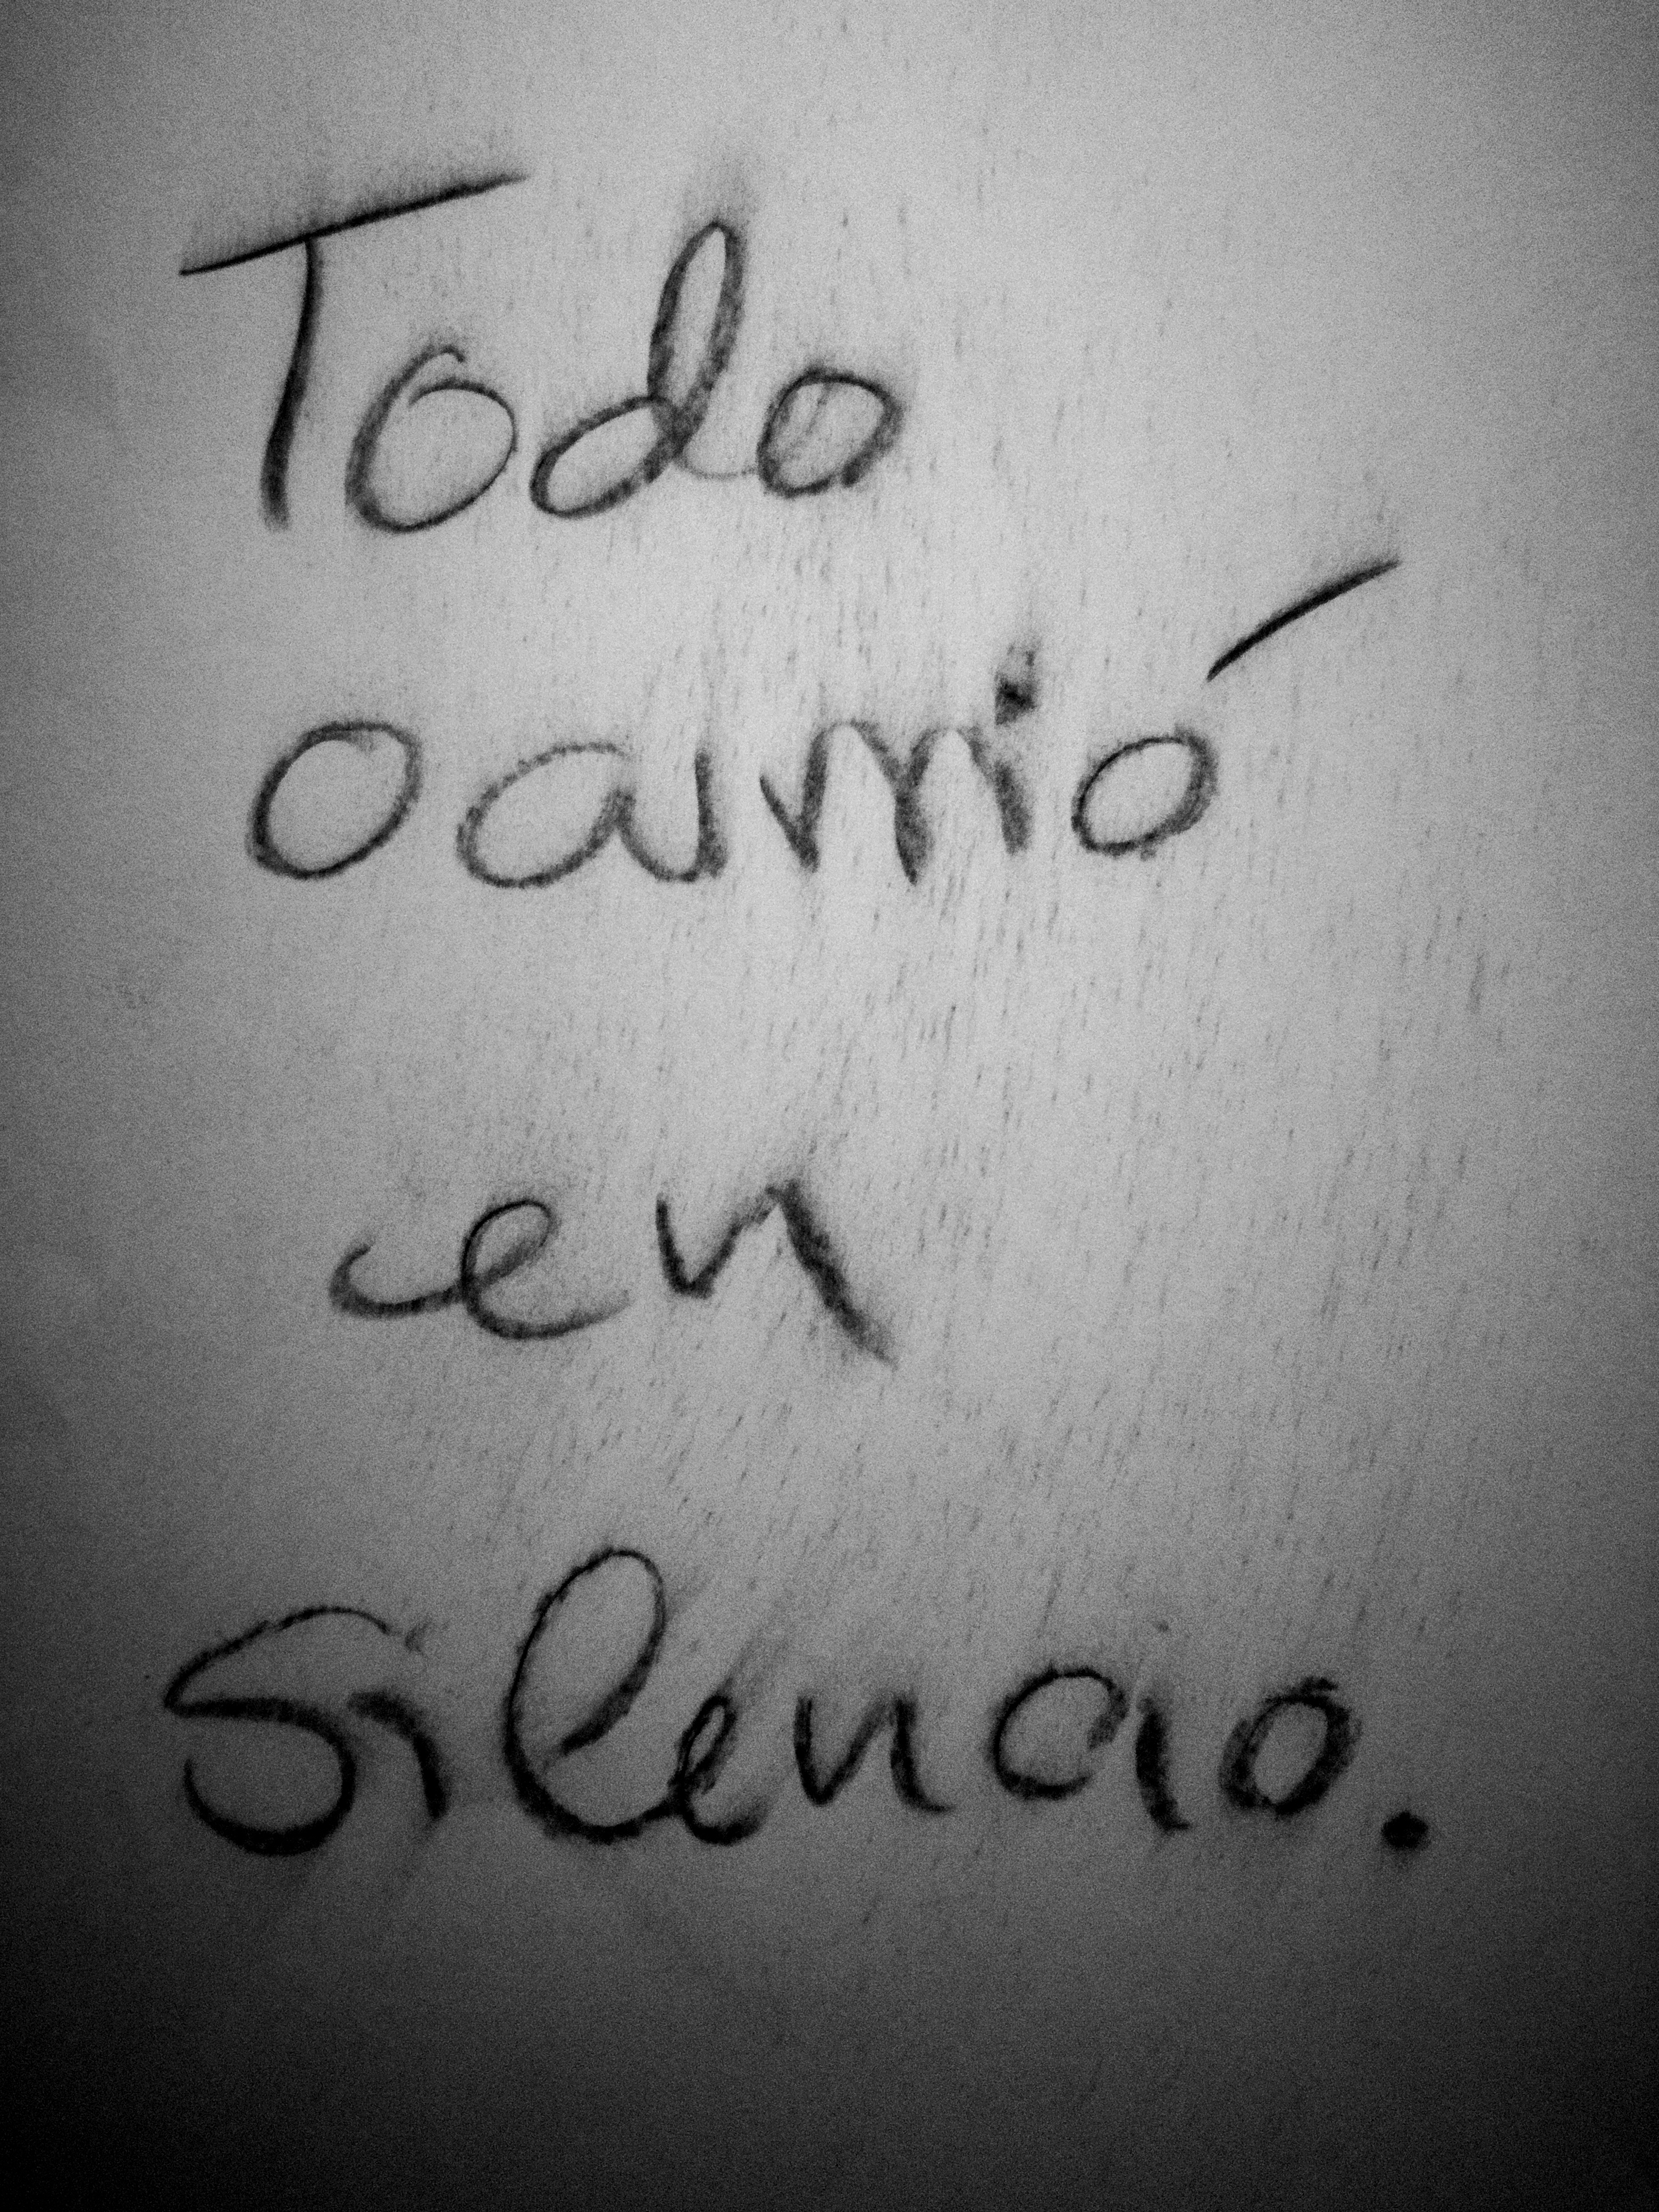 Todo
ocurrió
en
silencio.